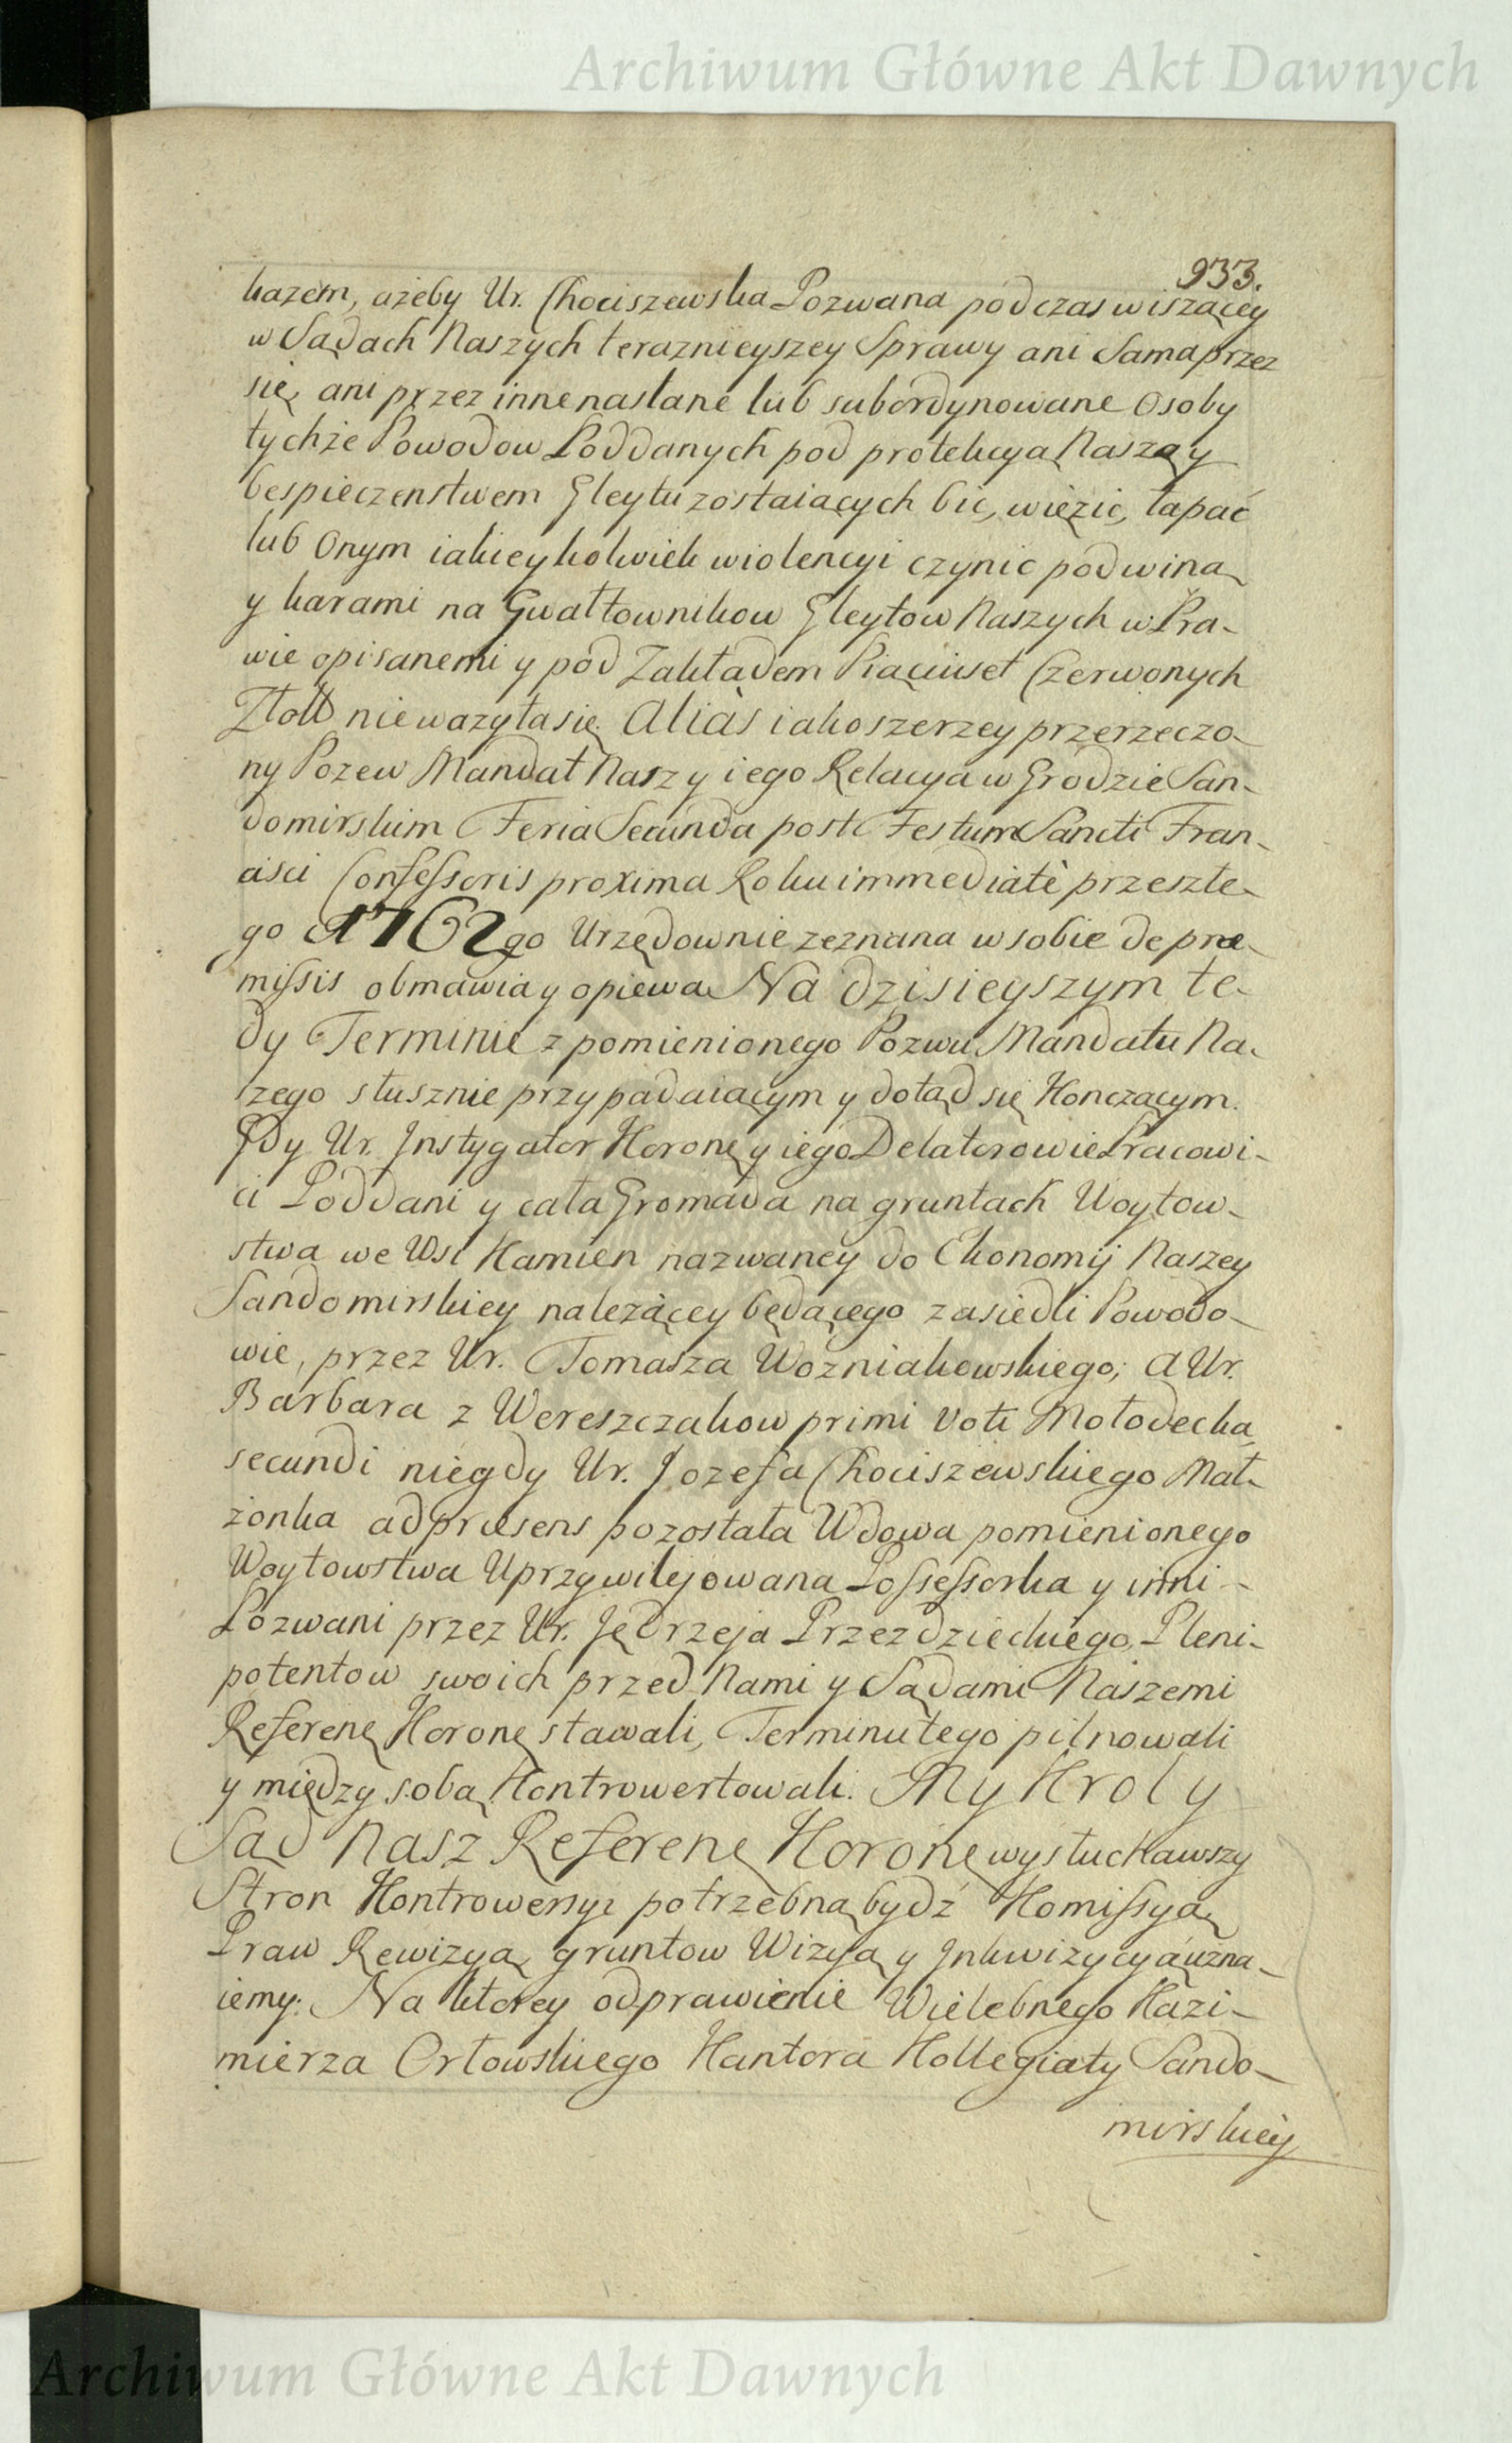 Archiwum Główne Akt Dawnych
933.
kazem, ażeby Ur. Chociszewska Pozwana podczas wiszącey
w Sądach Naszych teraznieyszey Sprawy ani Sama przez
się, ani przez inne nasłane lub subordynowane Osoby
tychże Powodow Poddanych pod protekcyą Naszą y
bespieczenstwem Gleytu zostaiących bic, więzic, łapać
lub Onym iakieykolwiek wiolencyi czynic pod winą
y karami na Gwałtownikow Gleytow Naszych w Pra-
wie opisanemi y pod Zakładem Piąciuset Czerwonych
Złott niewazyła się. Aliàs iako szerzey przerzeczo-
ny Pozew Mandat Nasz y iego Relacya w Grodzie San-
domirskim Feria Secunda post Festum Sancti Fran-
cisci Confessoris proxima Roku immediatè przeszłe-
go 1762go Urzędownie zeznana w sobie de præ-
missis obmawia y opiewa. Na dzisieyszym te-
dy Terminie z pomienionego Pozwu Mandatu Na-
szego słusznie przypadaiącym y dotąd się Konczącym.
Gdy Ur. Instygator Koronę y iego Delatorowie Pracowi-
ci Poddani y cała Gromada na gruntach Woytow-
stwa we Wsi Kamien nazwaney do Ekonomij Naszey
Sandomirskiey nalezącey będącego zasiedli Powodo-
wie, przez Ur. Tomasza Wozniakowskiego; a Ur.
Barbara z Wereszczakow primi voti Mołodecka,
secundi niegdy Ur. Jozefa Chociszewskiego Mał-
żonka ad præsens pozostała Wdowa pomienionego
Woytowstwa Uprzywilejowana Possessorka y inni -
Pozwani przez Ur. Jędrzeja Przezdzieckiego, Pleni-
potentow swoich przed Nami y Sądami Naszemi
Referenę Koronę stawali, Terminu tego pilnowali
y między sobą Kontrowertowali. My Krol y
Sąd Nasz Referenę Koronę wysłuchawszy
Stron Kontrowersyi potrzebną bydź Komissyą
Praw Rewizyą, gruntow Wizyą y Inkwizycyą uzna-
iemy. Na ktorey odprawienie Wielebnego Kazi-
mierza Orłowskiego Kantora Kollegiaty Sando-
mirskiey
Archiwum Główne Akt Dawnych